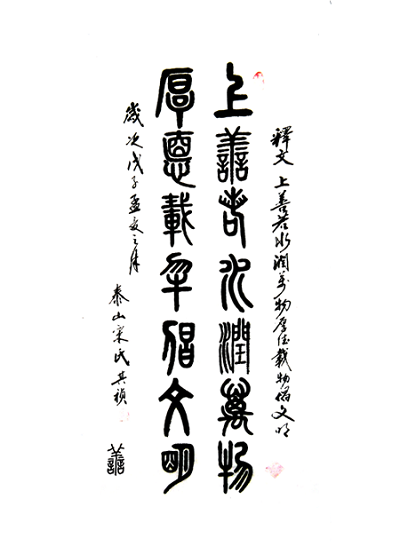 釋文 上善若水润萬物厚德载物倡文明
上善若水潤萬物
厚悳載倡文明
歲次戊子孟夏之月
泰山宋氏其祯
譱